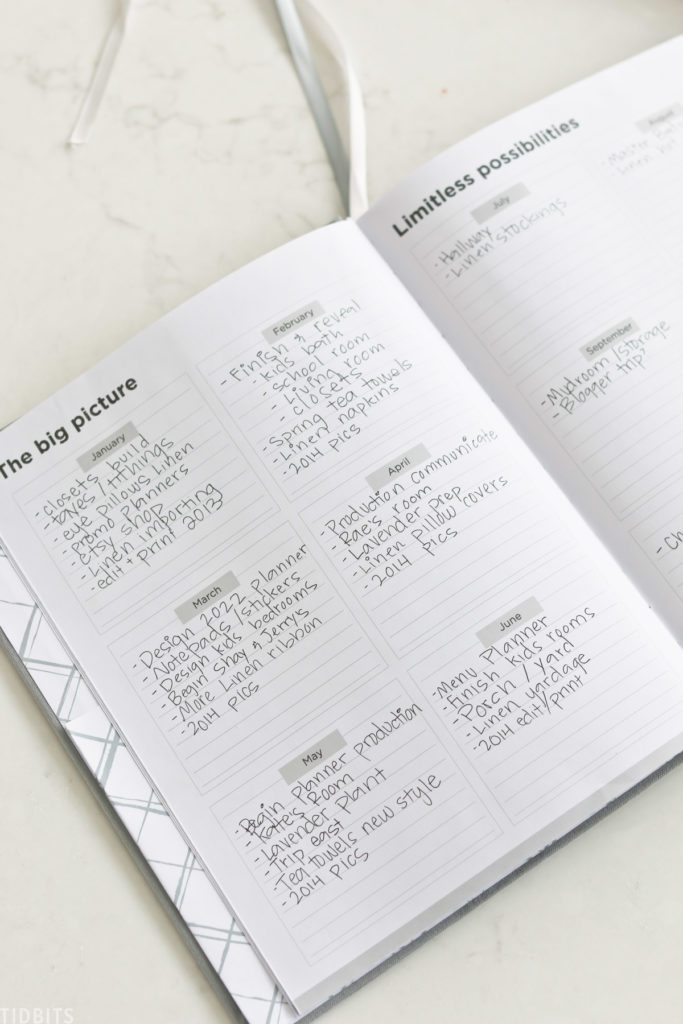 The big picture
January
- closets build
- taxes / tithings
- eye pillows linen
- Promo Planners
- Etsy shop
- Linen importing
- edit + print 2013
February
- Finish & reveal
- kids bath
- school room
- Living room
- closets
- Spring tea towels
- Linen napkins
- 2014 pics
March
- Design 2022 Planner
- Notepads / stickers
- Design kids bedrooms
- Begin Shay & Jerry's
- More Linen ribbon
- 2014 pics
April
- Production communicate
- Rae's room
- Lavender prep
- Linen Pillow covers
- 2014 pics
May
- Begin Planner production
- Kate's Room
- Lavender Plant
- Trip east
- Tea towels new style
- 2014 pics
June
- Menu Planner
- Finish kids rooms
- Porch / Yard
- Linen yardage
- 2014 edit/print
Limitless possibilities
July
- Hallway
- Linen stockings
August
- Master
- Linen
September
- Mudroom / storage
- Blogger trip
TIDBITS